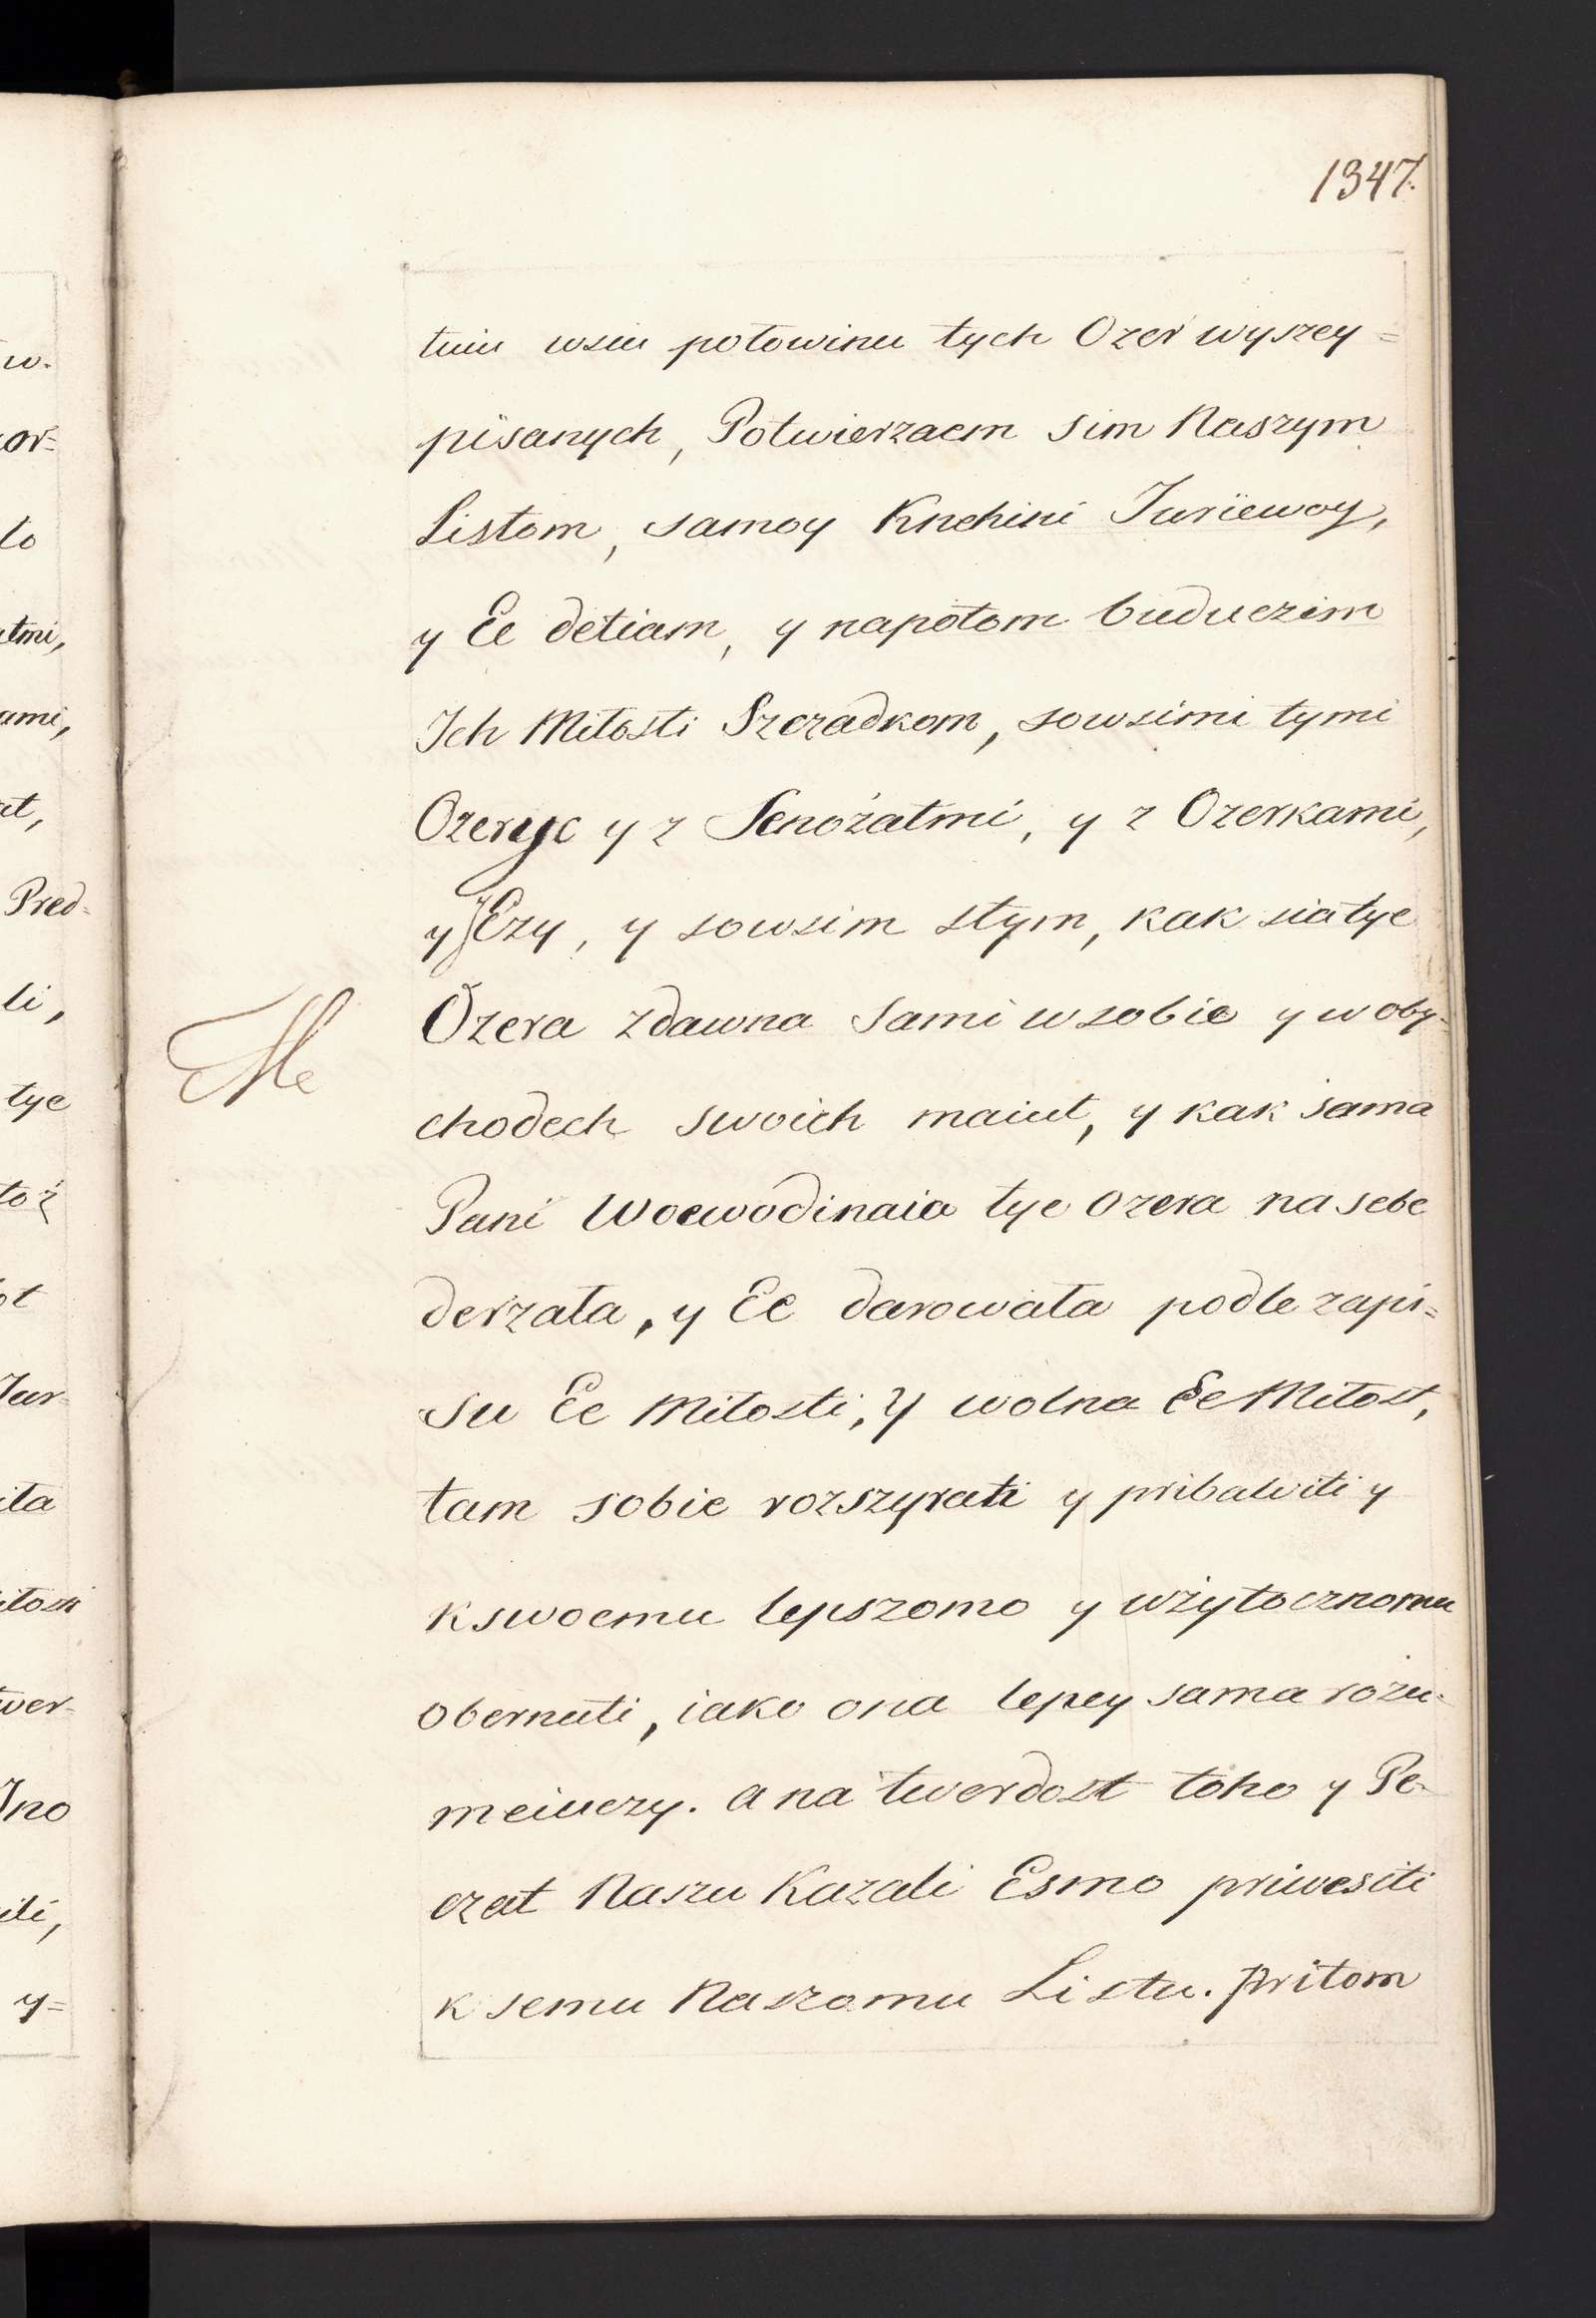 1347.
tuiu wsiu połowinu tych Ozer wyszey=
pisanych, Potwierzaem sim Naszym
Listom, samoy Knehini Juriewoy,
y Ee detiam, y napotom buduczim
Ich Miłosti Szczadkom, sowsimi tymi
Ozery y z Senożatmi, y z Ozerkami,
y Jezy, y sowsim stym, kak sia tye
Ozera zdawna sami w sobie y w oby=
chodech swoich maiut, y kak sama
Pani Woewodinaia tye ozera na sebe
derzała, y Ee darowała podle zapi=
su Ee Miłosti, y wolna Ee Miłost,
tam sobie rozszyrati y pribawiti y
k swoemu lepszomo y wżytocznomu
obernuti, iako ona lepey sama rozu=
meiuczy. a na twerdost toho y Pe=
czat Naszu Kazali Esmo priwesiti
k semu Naszomu Listu. pritom
w.
or=
to
atmi,
ami,
at,
Pred=
li,
tye
toż
ot
Jur=
iła
iłosti
wer=
Jno
ili,
y=